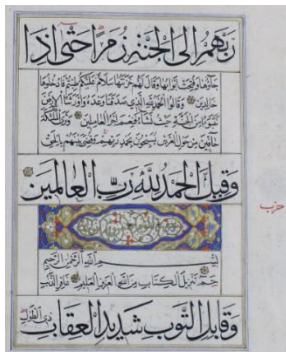 ربهم الى الجنة زمرا حتى اذا
جاؤها وفتحت ابوابها وقال لهم خزنتها سلام عليكم طبتم فادخلوها
خالدين وقالوا الحمد لله الذي صدقنا وعده واورثنا الارض
نتبوا من الجنة حيث نشاء فنعم اجر العاملين وترى الملئكة
حافين من حول العرش يسبحون بحمد ربهم وقضي بينهم بالحق
وقيل الحمد لله رب العالمين
حزب
بسم الله الرحمن الرحيم
حم تنزيل الكتاب من الله العزيز العليم غافر الذنب
وقابل التوب شديد العقاب ذي الطول